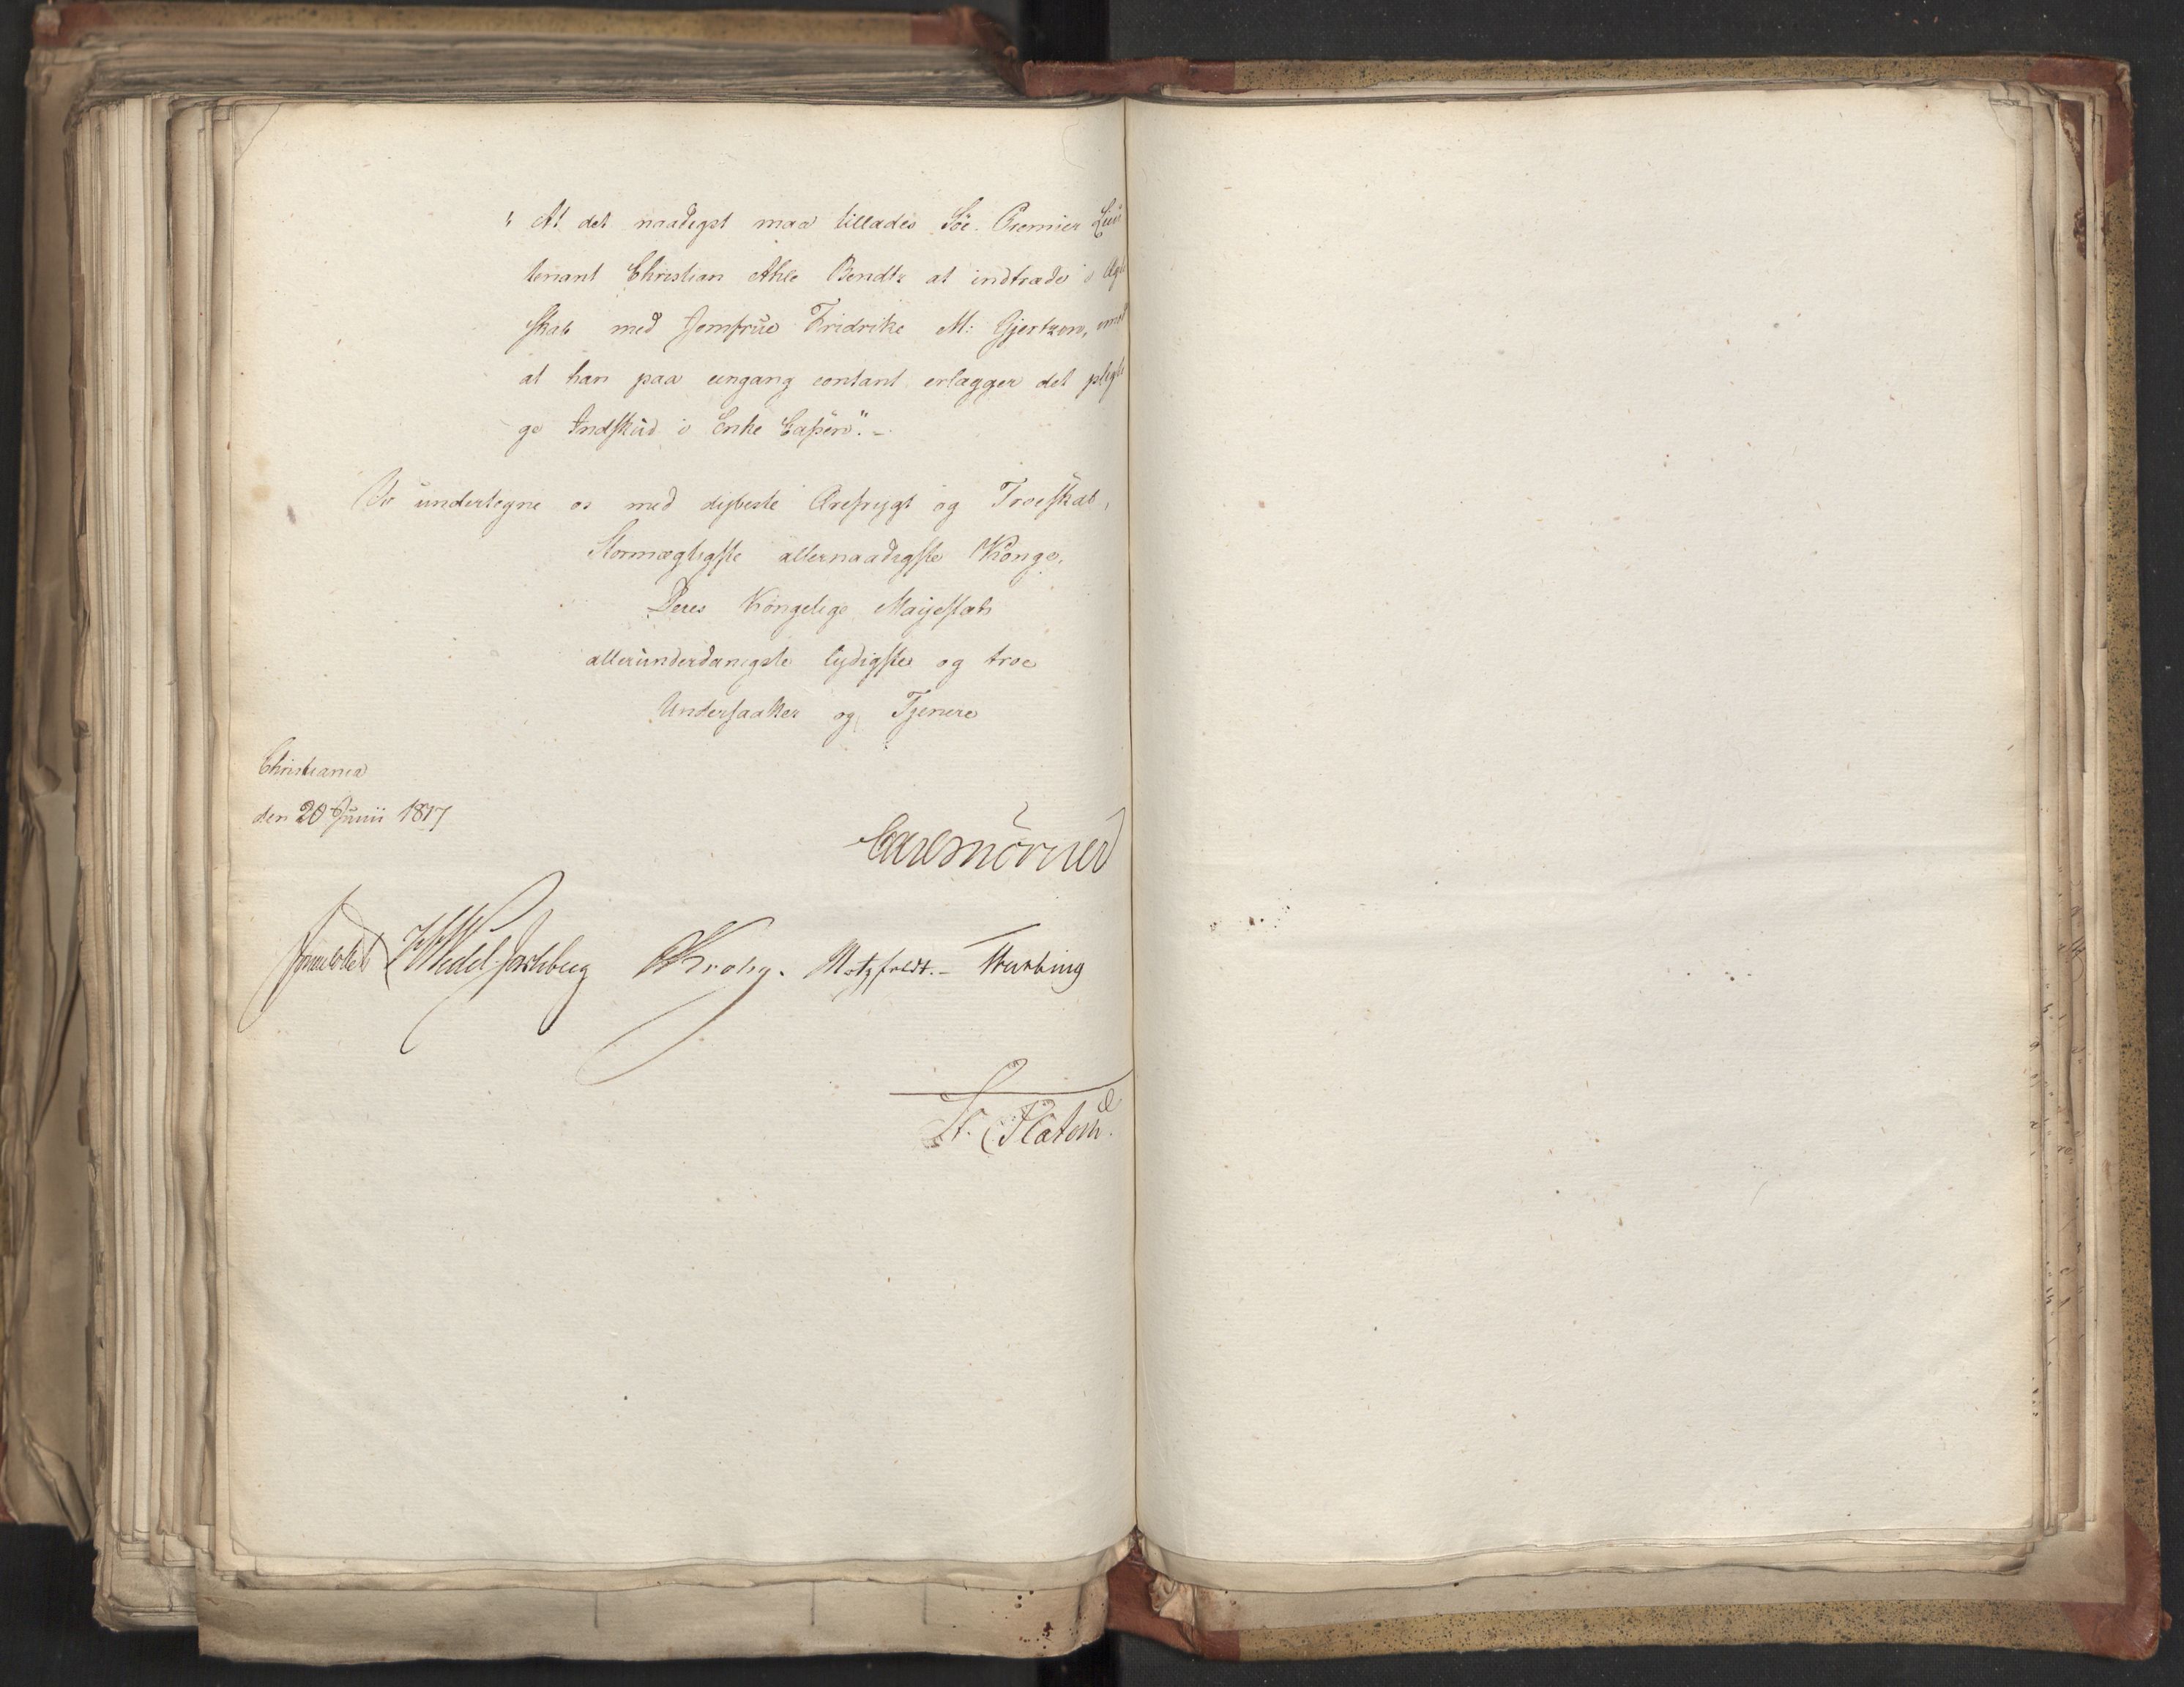 "At det naadigst maa tillades Söe-Premier Lieu
tenant Christian Ahle Bendtz at indtræde i Ægte
skab med Jomfrue Fridrike M: Gjertzen, imod
at han paa eengang contant erlægger det pligti
ge Indskud i Enke Cassen". -
Vi undertegne os med dybeste Ærefrygt og Troeskab,
Stormægtigste allernaadigste Konge,
Deres Kongelige Majestæts
allerunderdanigste lydigste og troe
Undersaatter og Tjenere
Christiania
den 20 Junii 1817
Carl Mörner
Sommerfeldt HWedel Jarlsberg Krohg. Motzfeldt. - Thrybring
St. Platou